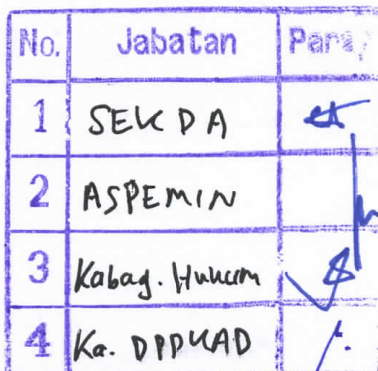 No. Jabatan Para
1 SEKDA
2 ASPEMIN
3 Kabag. Hukum
4 Ka. DPPKAD